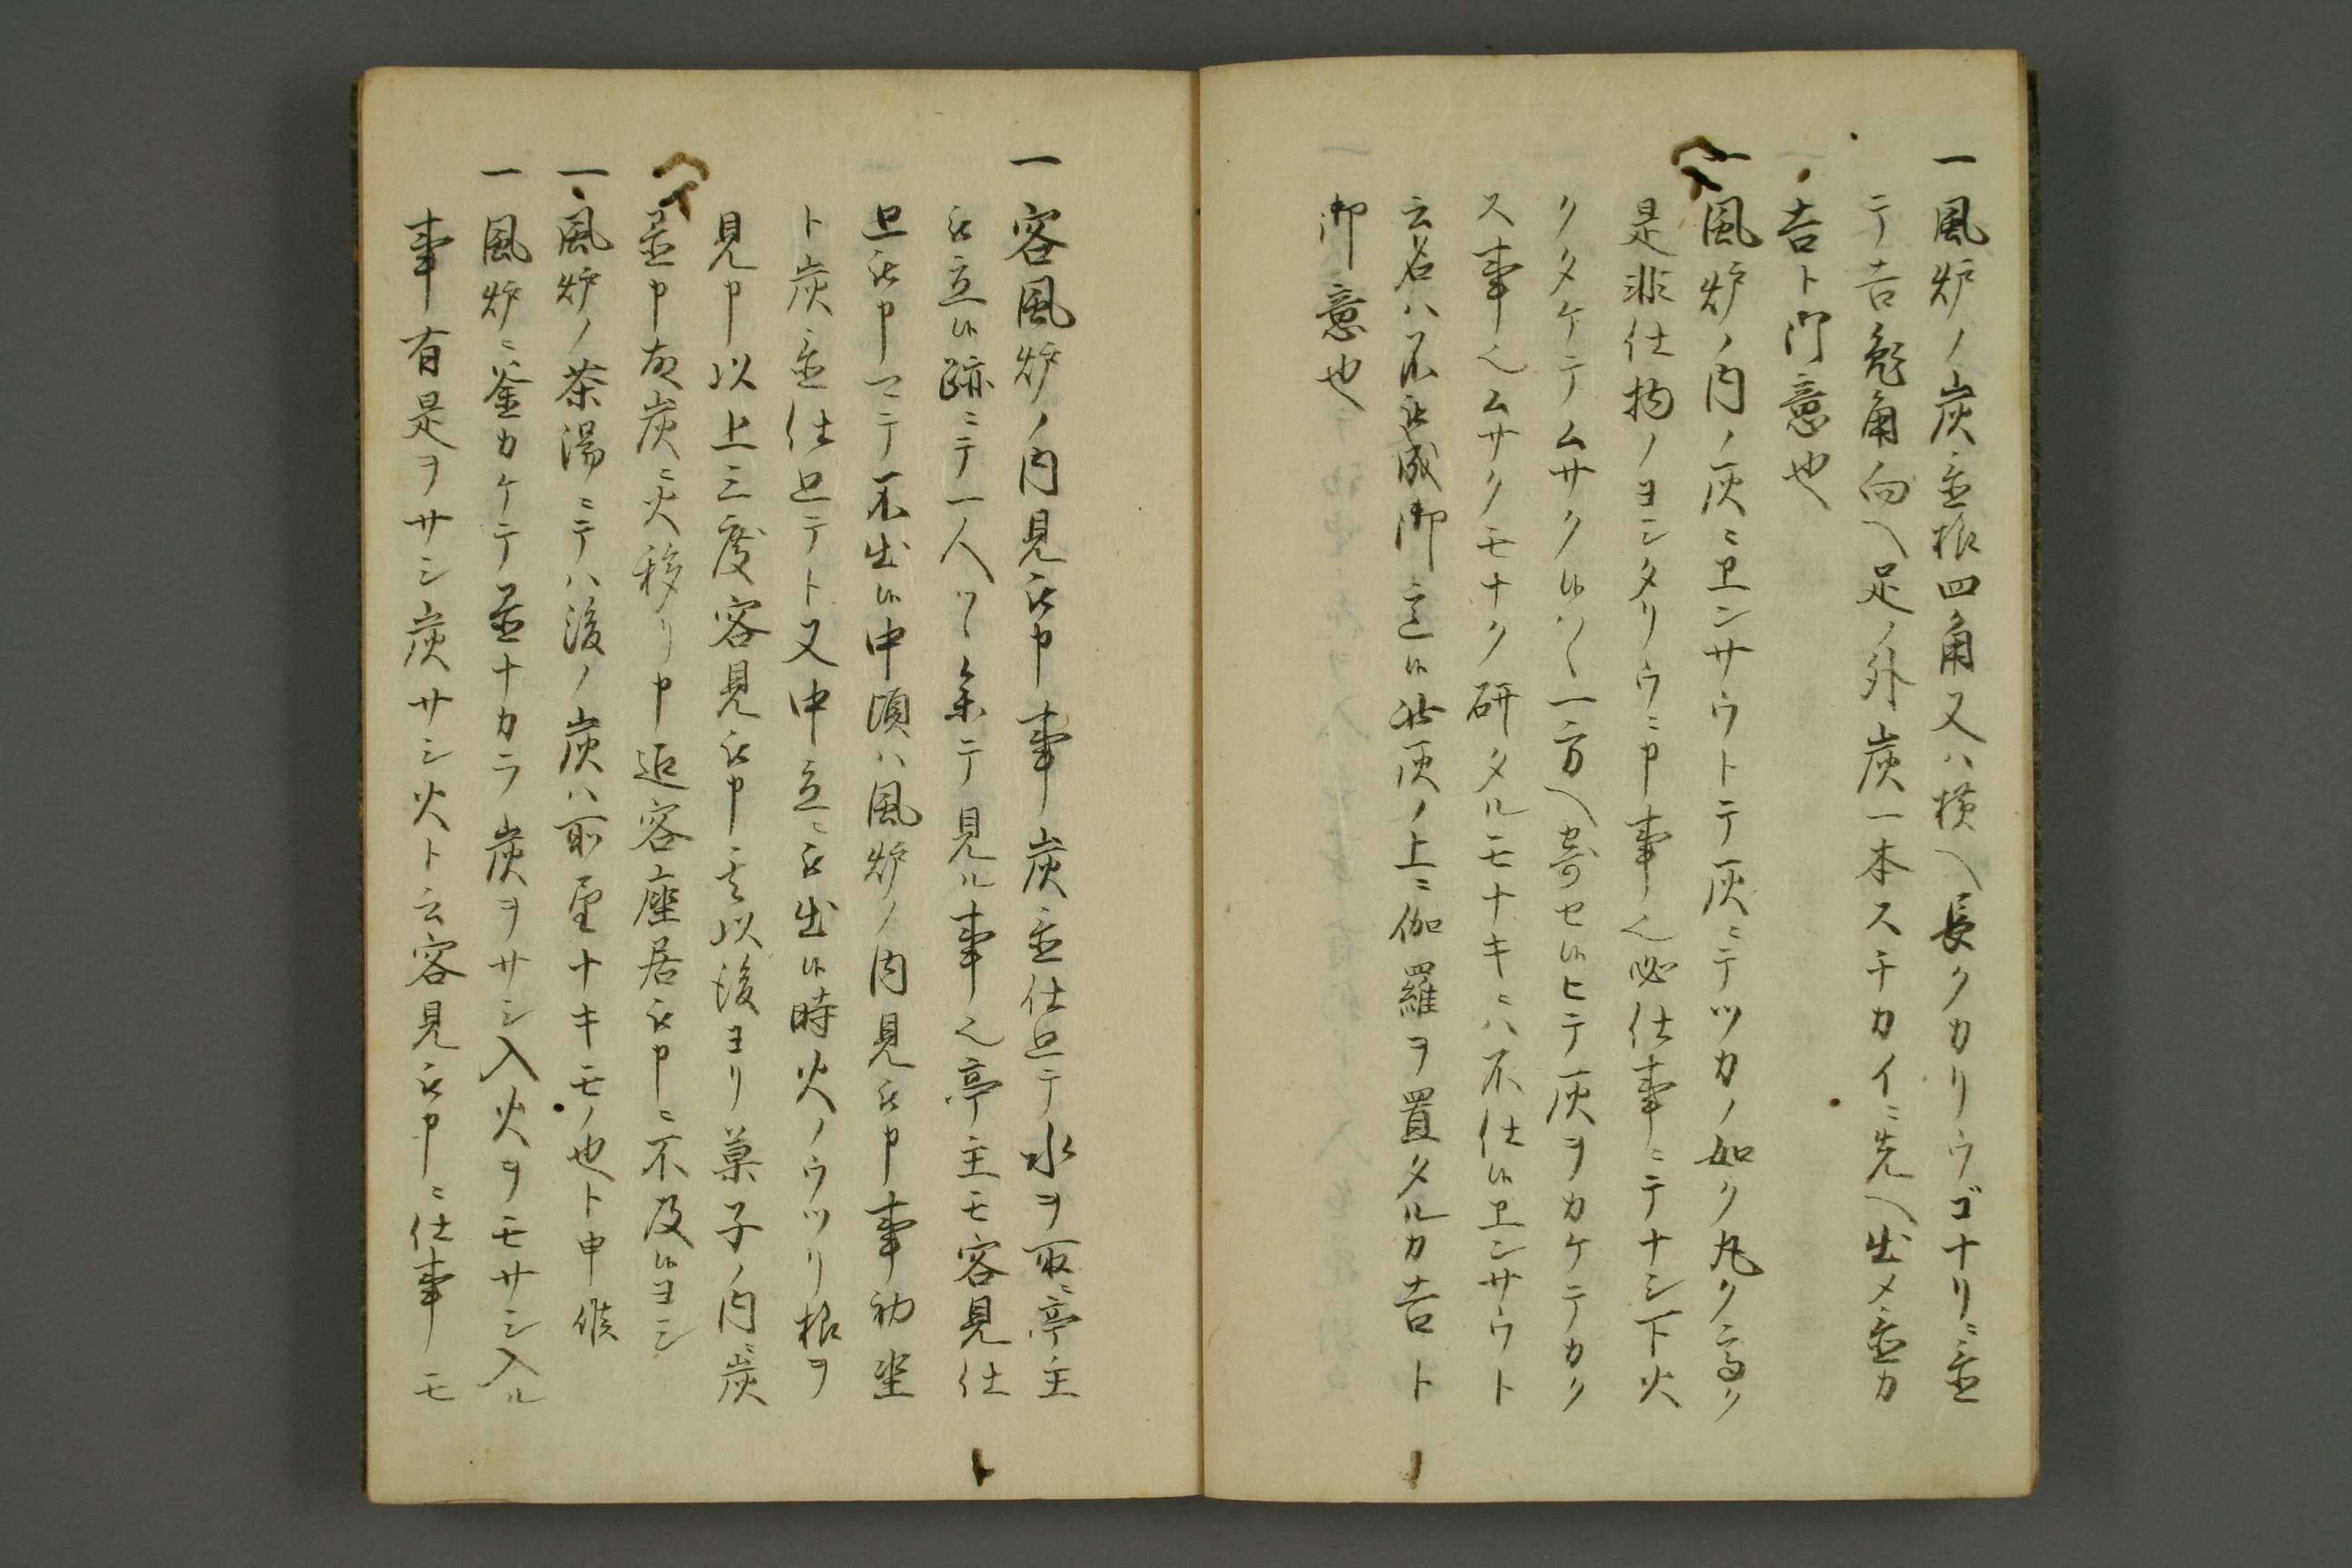 一風炉ノ炭置様四角又ハ横ヘ長クカリウゴナリニ置
テ吉兎角向ヘ足ノ外炭一本スチカイニ先ヘ出メ置カ
吉ト御意也
一風炉ノ内ノ灰ニヱンサウトテ灰ニテツカノ如ク丸ク高ク
是非仕物ノヨシタリウニ申事也必仕事ニテナシ下火
クタケテムサク候ハヽ一方ヘ寄セ候ヒテ灰ヲカケテカク
ス事也ムサクモナク研タルモナキニハ不仕候ヱンサウト
云名ハ不被成御意候此灰ノ上ニ伽羅ヲ置タルカ吉ト
御意也
一客風炉ノ内見被申事炭置仕巴テ水ヲ取ニ亭主
被立候跡ニテ一人ツヽ参テ見ル事也亭主モ客見仕
巴被申マテ不出候中頃ハ風炉ノ内見被申事初坐
ト炭置仕巴テト又中立ニ被出候時火ノウツリ様ヲ
見申以上三度客見被申其以後ヨリ菓子ノ内ニ炭
置申故炭ニ火移リ申迄客座居被申ニ不及候ヨシ
一風炉ノ茶湯ニテハ後ノ炭ハ前置ナキモノ也ト申候
一風炉ニ釜カケテ置ナカラ炭ヲサシ入火ヲモサシ入ル
事有是ヲサシ炭サシ火ト云客見被申ニ仕事モ